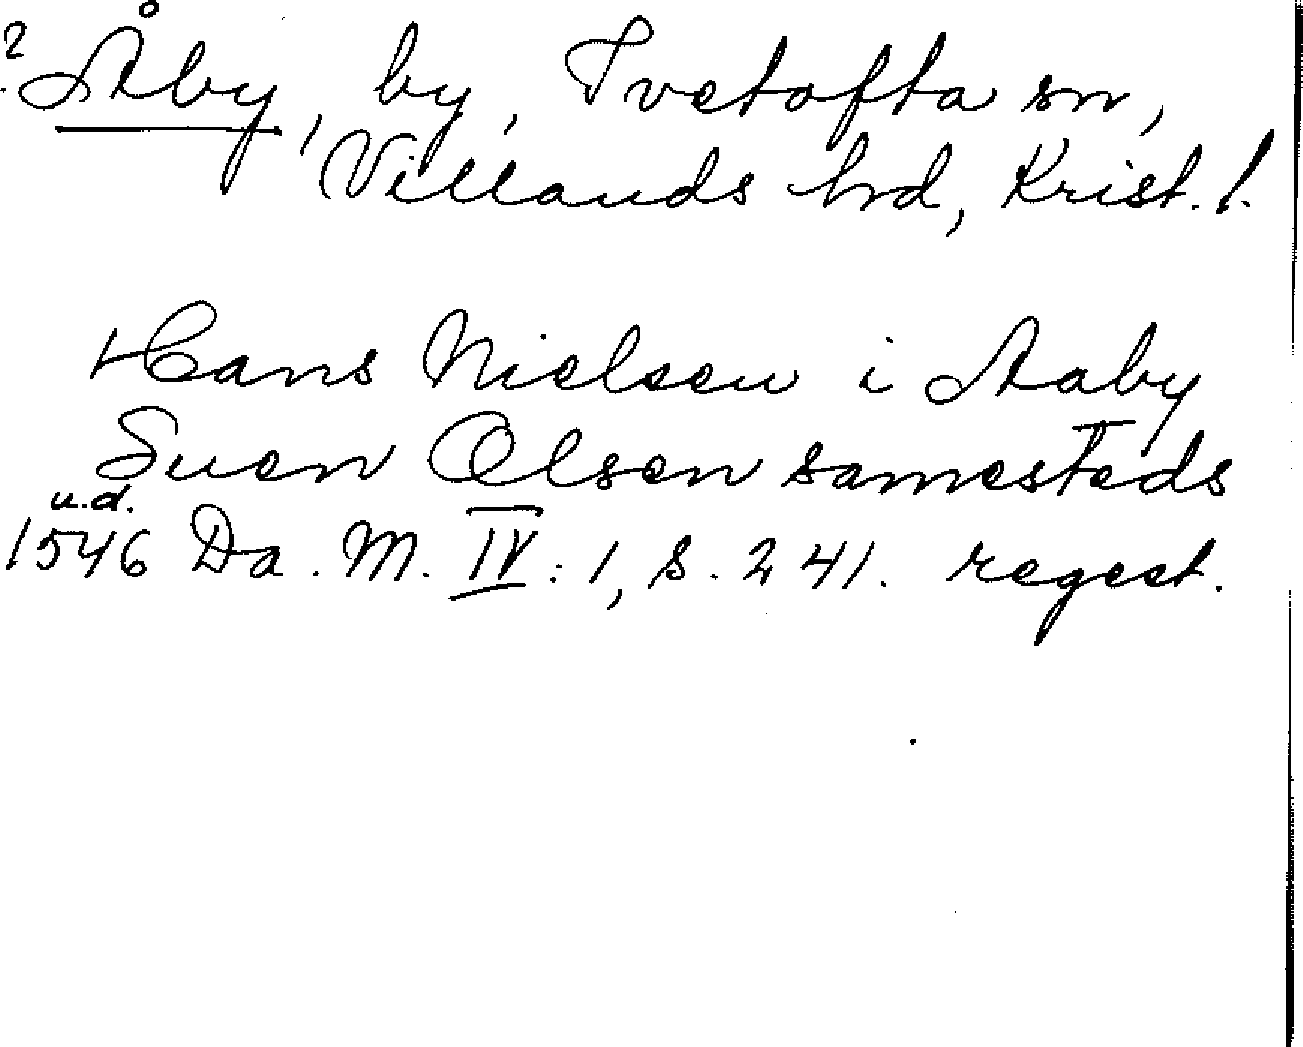 ? Åby, by, Tvetofta sn,
Villands hrd, Krist. l.
Hans Nielsen i Aaby
Suen Olsen samesteds
u.d.
1546 Da. M. IV: 1, S. 241. regest.